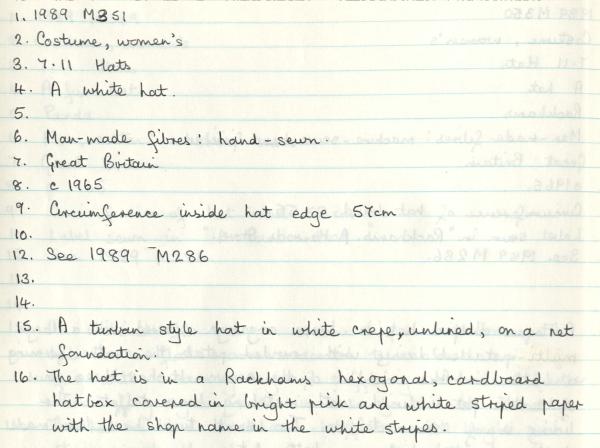 1. 1989 M351
2. Costume, women's
3. 7.11 Hats
4. A white hat.
5.
6. Man-made fibres: hand-sewn.
7. Great Britain
8. c 1965
9. Circumference inside hat edge 57cm
10.
12. See 1989 M286
13.
14.
15. A turban style hat in white crepe, unlined, on a net
foundation.
16. The hat is in a Rackhams hexogonal, cardboard
hatbox covered in bright pink and white striped paper
with the shop name in the white stripes.